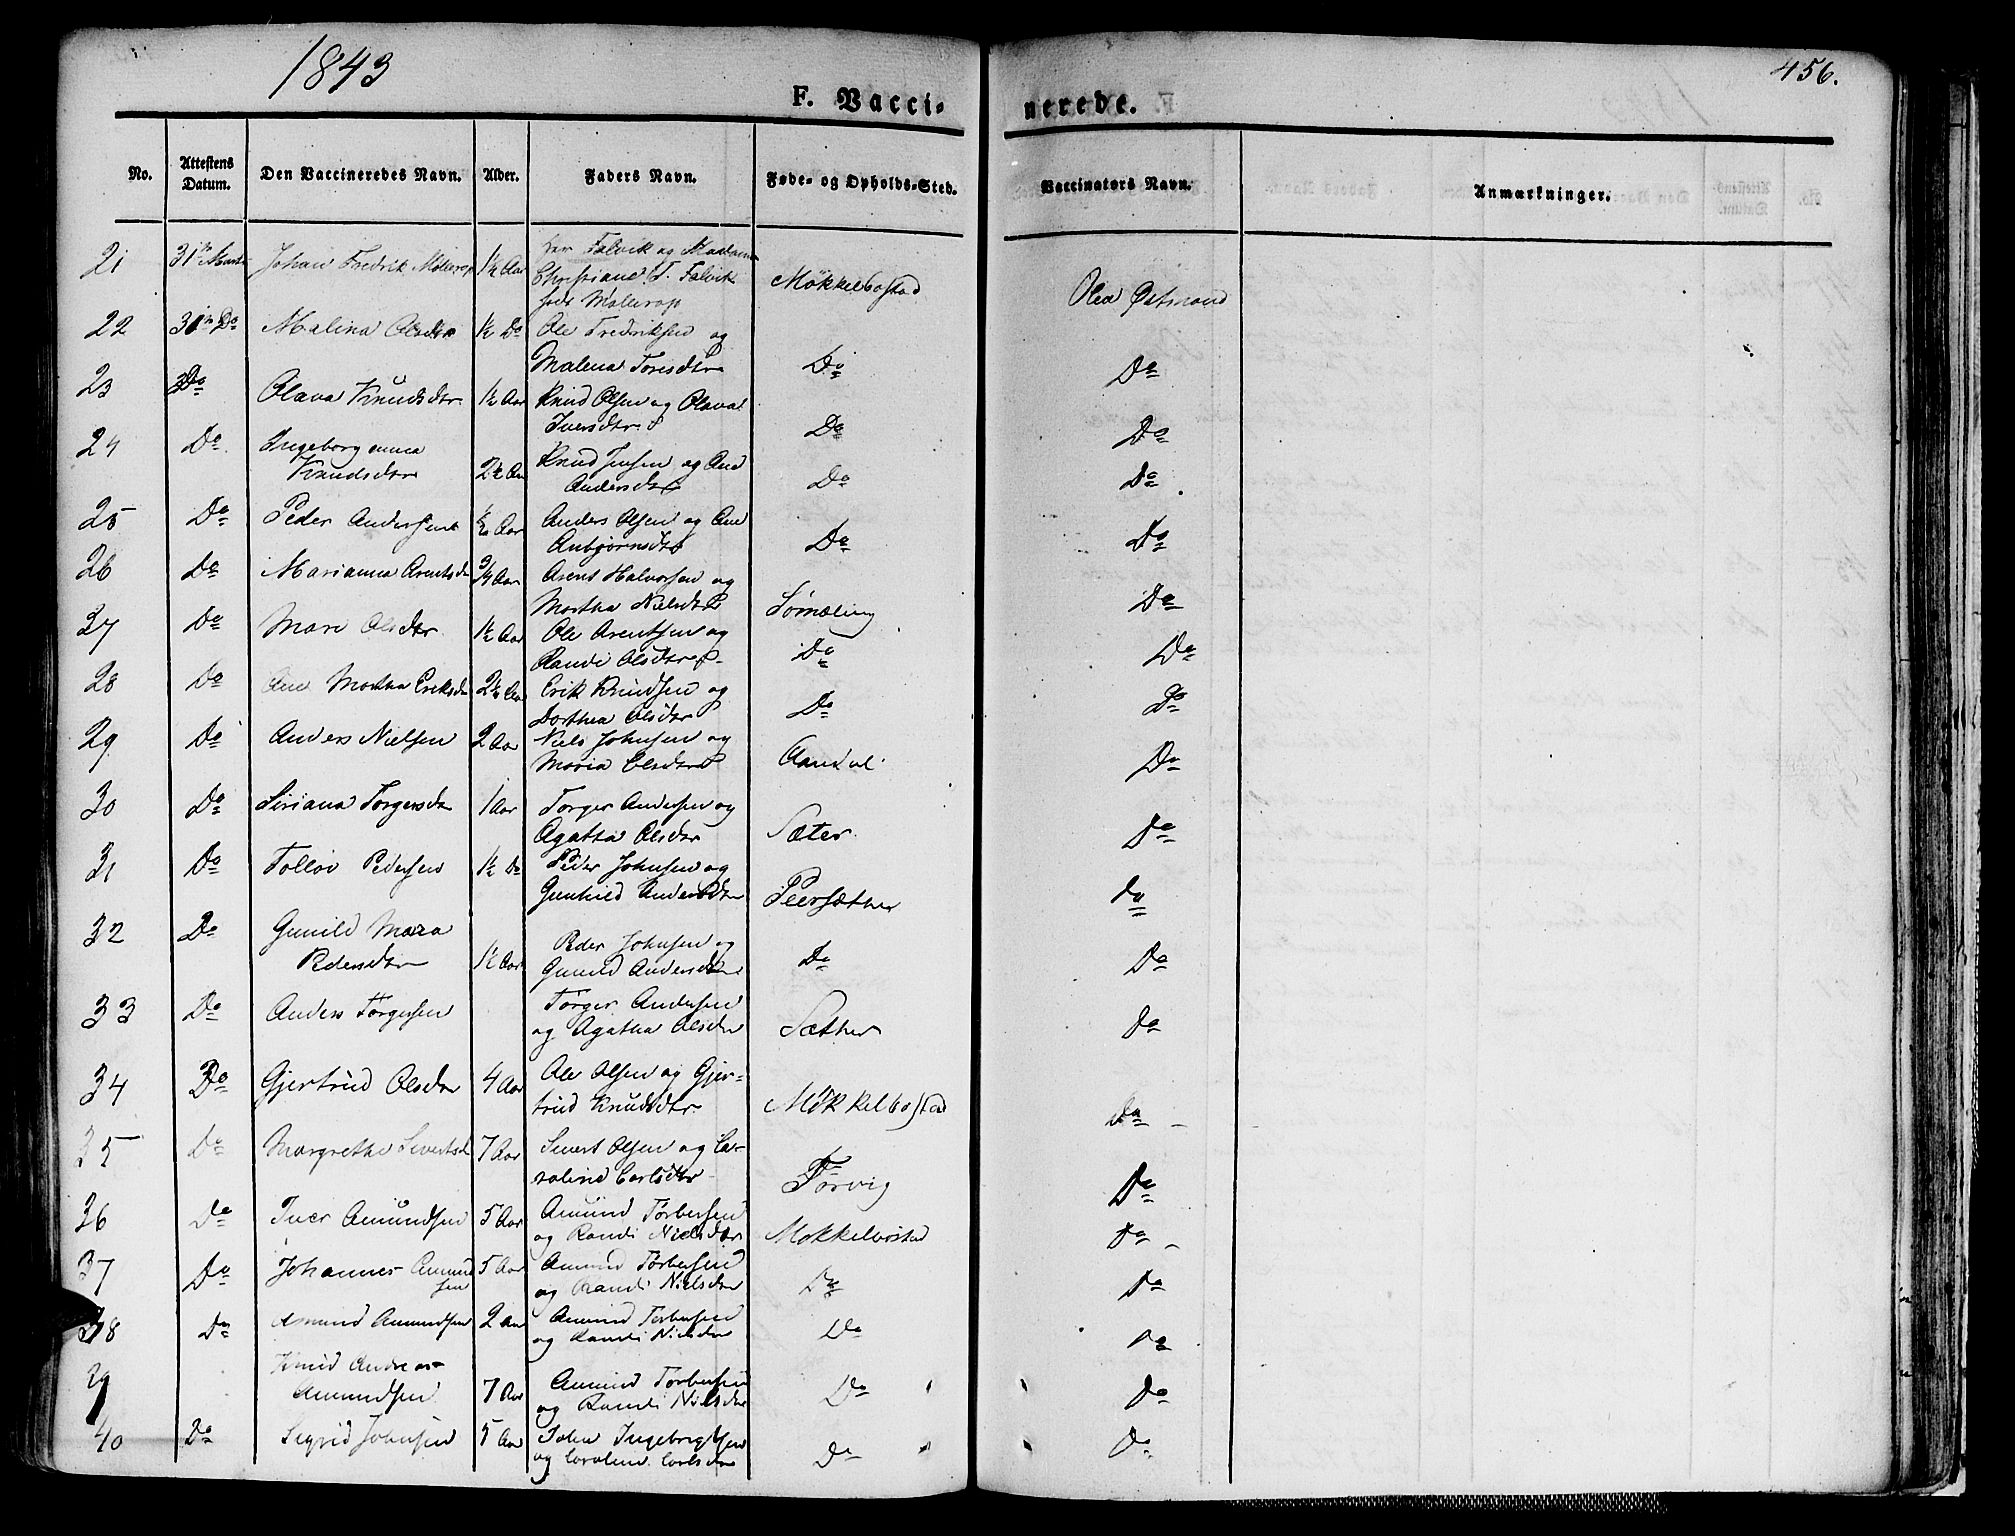 1843
456.
F. Vacci-
nerede.
No.
Attestens Datum.
Den Vaccineredes Navn.
Alder.
Faders Navn.
Føde- og Opholds-Sted.
Vaccinators Navn.
Anmærkninger.
21 31te Johan Fredrik 1½ Aar Falvik og Madam
Christiane T. Falvik Møkkelbostad Østmand
22 31te Do Malina Olsdtr ½ Do Ole Fredriksen og
Malena Do Do
23 Do Olava Knudsdtr 1½ Aar Knud Olsen og Olava
Iversdtr Do Do
24 Do Ingeborg Anna
Knudsdtr 2½ Aar Knud Jensen og Ane
Andersdtr Do Do
25 Do Peder Andersen ½ Aar Anders Olsen og Ane
Anbjørnsdtr Do Do
26 Do Marianna Arentsdr ¾ Aar Arent Halvorsen og
Martha Nielsdtr Sømæling Do
27 Do Mari Olsdtr 1½ Aar Ole Arentsen og
Randi Olsdtr Do Do
28 Do Ane Martha Eriksdr 2½ Aar Erik Knudsen og
Dorthea Olsdtr Do Do
29 Do Anders Nielsen 2 Aar Niels Johnsen og
Maria Olsdtr Do
30 Do Siriana Torgersdtr 1 Aar Torger Andersen og
Agatha Olsdtr Sæter Do
31 Do Pedersen 1½ Do Peder Johnsen og
Gunhild Andersdtr Peersæther do
32 Do Gunild Mara
Pedersdtr 1½ Aar Peder Johnsen og
Gunild Andersdtr Do Do
33 Do Anders Torgersen Torger Andersen
og Agatha Olsdtr Sæther Do
34 Do Gjertrud Olsdtr 4 Aar Ole Olsen og Gjer-
trud Knudsdtr Møkkelbostad Do
35 Do Margrethe Sivertsd 7 Aar Sivert Olsen og Ca-
rolina Carlsdtr Forvig Do
36 Do Iver Amundsen 5 Aar Amund Torbersen
og Randi Nielsdtr Mokkelbostad Do
37 Do Johannes Amund
sen 5 Aar Amund Torbersen
og Randi Nielsdtr Do Do
38 Do Amund Amundsen 2 Aar Amund Torbersen
og Randi Nielsdtr Do Do
39 Knud Andreas
Amundsen 7 Aar Amund Torbersen
og Randi Nielsdtr Do Do
40 Do Sigrid Johnsen 5 Aar John Ingebrigtsen
og Caroline Carlsdtr Do Do